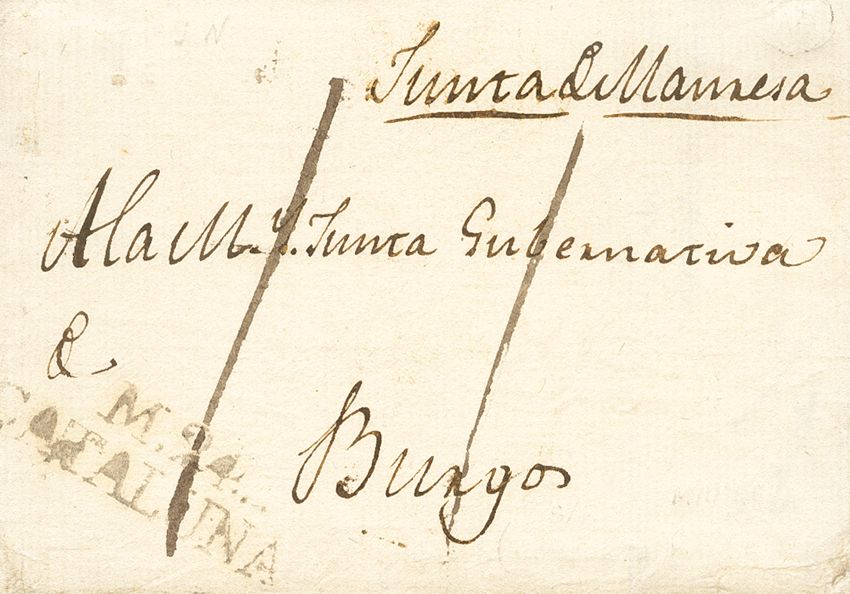 Junta de Manresa
A la M.Y. Junta Gubernativa
de
Burgos
M.24..
CATALUÑA